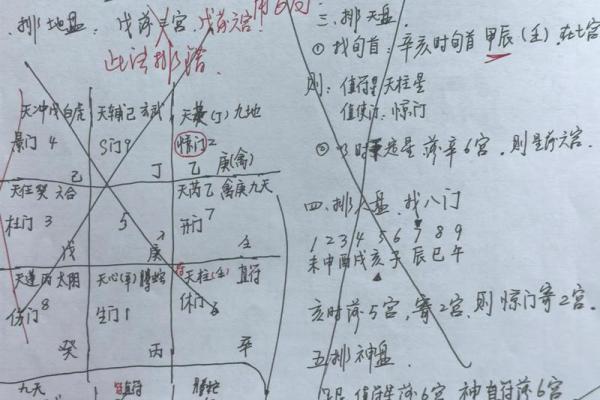 排地盘: 戊落三宫 戊落六宫
此法排错
三.排天盘.
① 找旬首: 辛亥时旬首 甲辰(壬).在七宫
则: 值符是天柱星
值使门: 惊门
落辛6宫. 则是落六宫.
四.排人盘 找八门
1 2 3 4 5 6 7 8 9
未申酉戌亥子 辰巳午
亥时落5宫, 寄2宫. 则惊门寄2宫.
五排神盘.
值符 落6宫 神直符落6宫
天冲戊白虎 天辅己玄武 天英(丁)九地
景门 4 S门9 惊门2
己 丁 乙 庚(禽)
天任癸 六合 天芮乙 禽庚九天
杜门 3 5 开门7
戊 庚 壬
天蓬丙太阴 天心(辛)腾蛇 天柱(壬) 直符
伤门8 生门1 休门6
癸 丙 辛
九天 直符 腾蛇